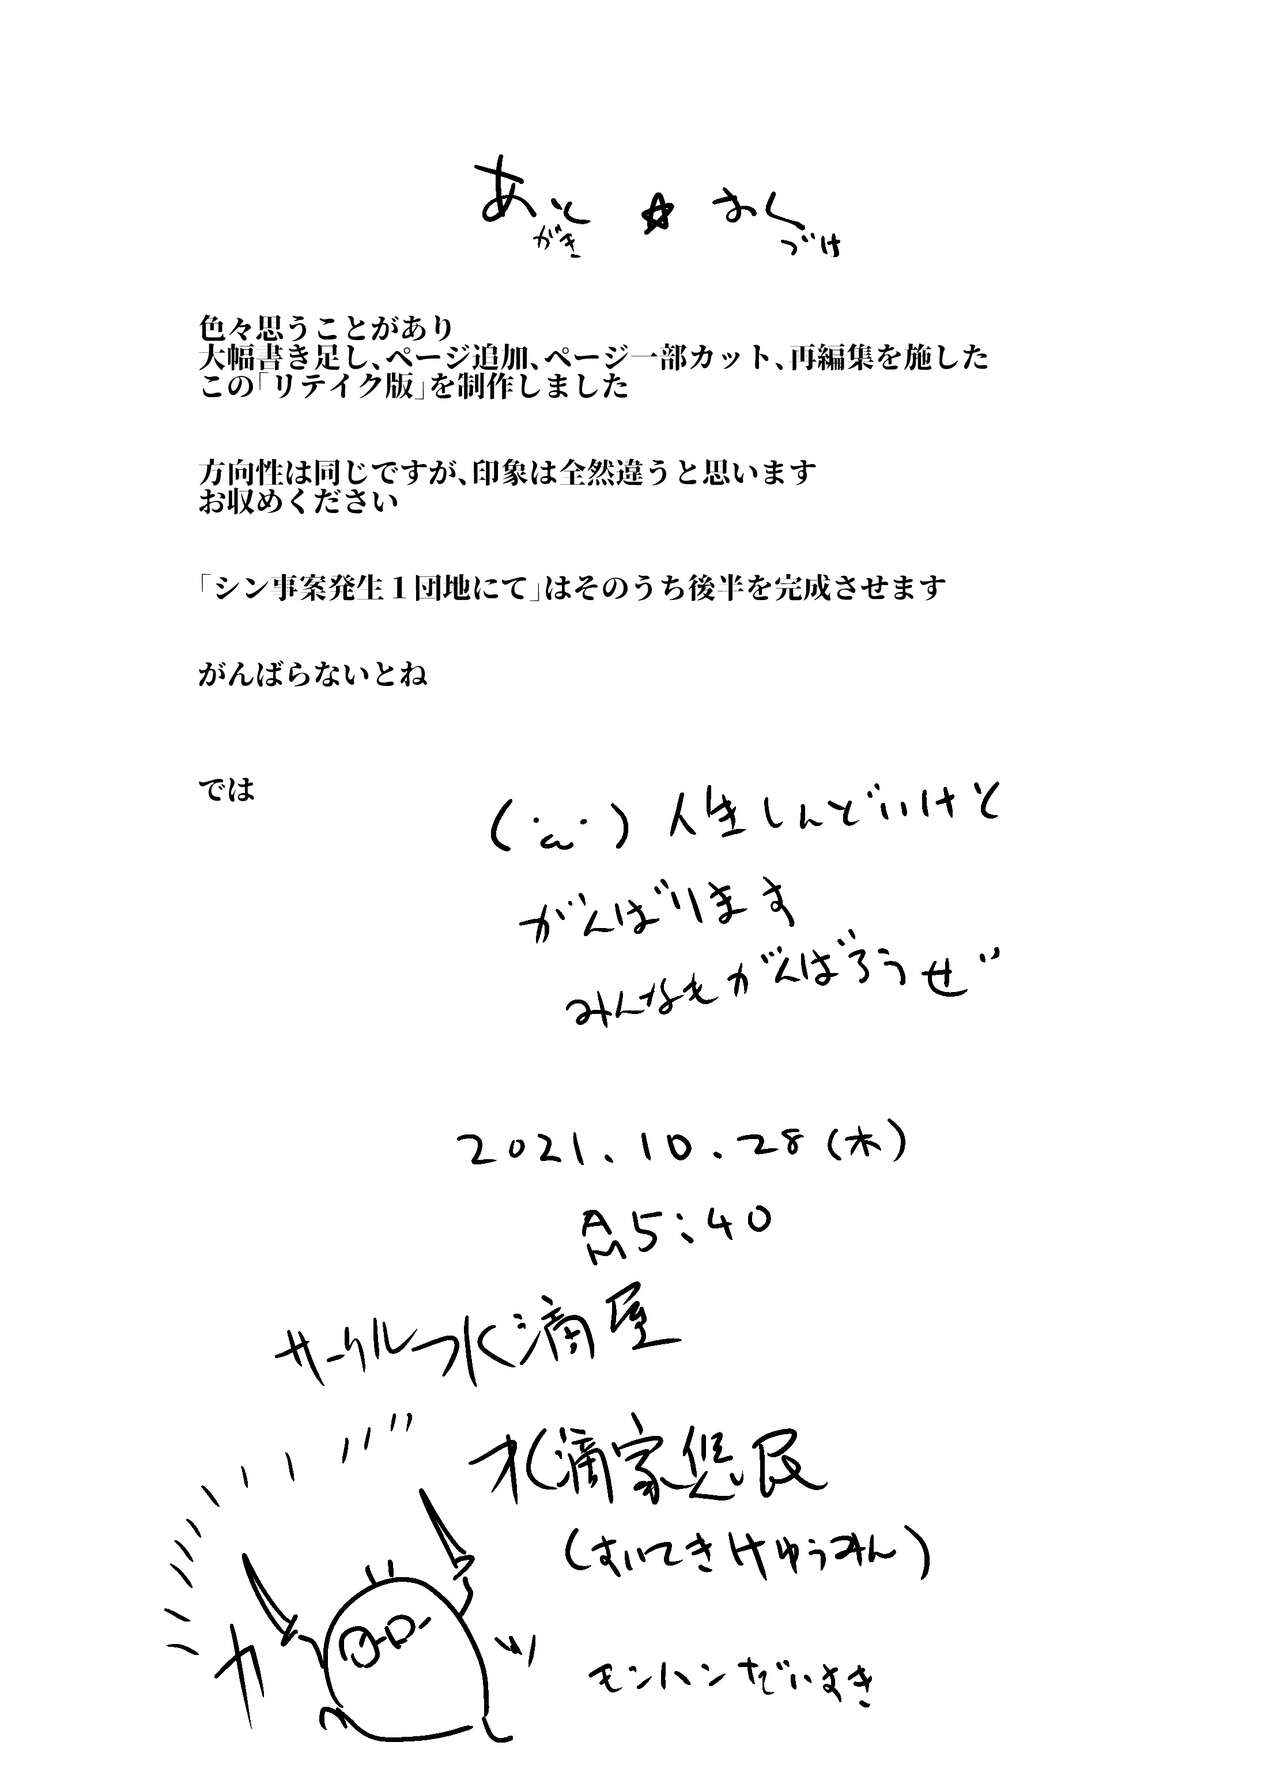 あとがき ☆ おくづけ
色々思うことがあり
大幅書き足し、ページ追加、ページ一部カット、再編集を施した
この「リテイク版」を制作しました
方向性は同じですが、印象は全然違うと思います
お収めください
「シン事案発生１団地にて」はそのうち後半を完成させます
がんばらないとね
では
(・ω・) 人生しんどいけど
がんばります
みんなもがんばろうぜ
2021.10.28(木)
AM5:40
サークル水滴屋
水滴家悠民
(すいてきけゆうみん)
カッ
モンハンだいすき